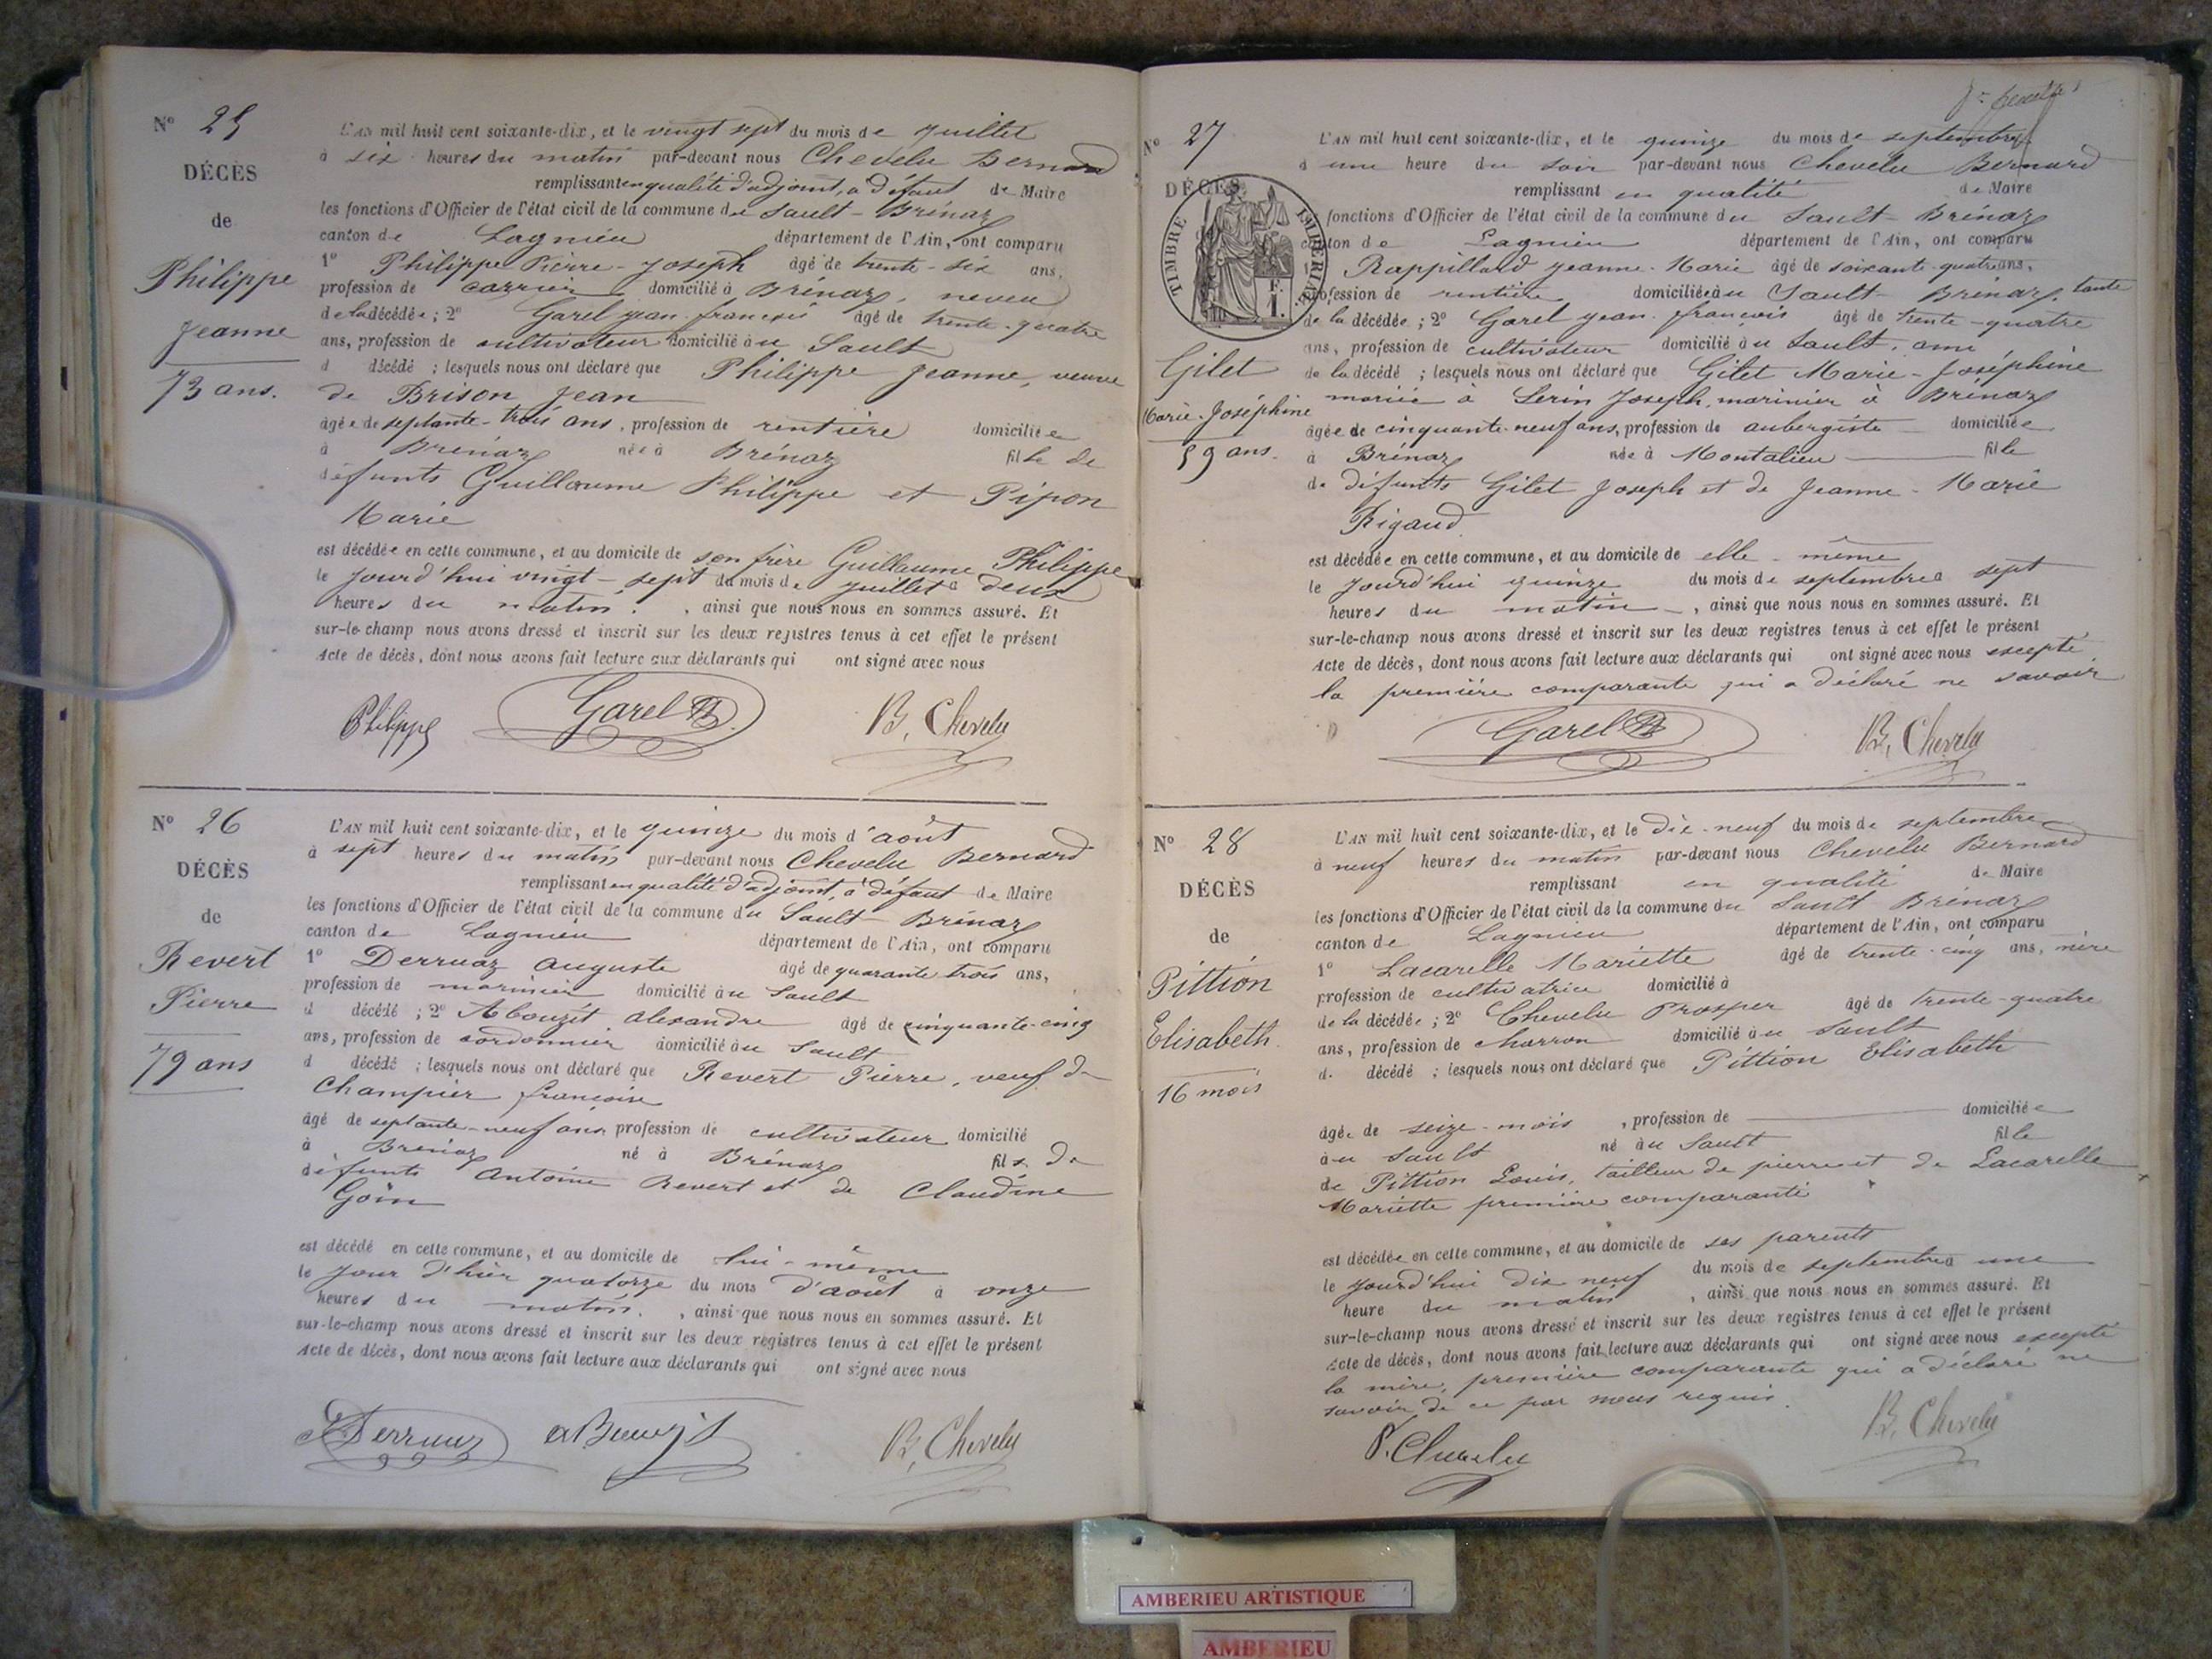 N° 25
DÉCÈS
de
Philippe
Jeanne
73 ans.
L'AN mil huit cent soixante-dix, et le vingt sept du mois de Juillet
à six heures du matin par-devant nous Chevelu Bernard
remplissant en qualité d'adjoint, à défaut de Maire
les fonctions d'Officier de l'état civil de la commune du Sault-Brénaz
canton de Lagnieu département de l'Ain, ont comparu
1° Philippe Pierre-Joseph âgé de trente-six ans,
profession de carrier domicilié à Brénaz, neveu
de la décédée; 2° Garel jean-françois âgé de trente-quatre
ans, profession de cultivateur domicilié au Sault
d décédé ; lesquels nous ont déclaré que Philippe Jeanne, veuve
de Brison Jean
âgée de septante-trois ans, profession de rentière domiciliée
à Brénaz née à Brénaz fille de
défunts Guillaume Philippe et Pipon
Marie
est décédée en cette commune, et au domicile de son frère Guillaume Philippe
le jourd'hui vingt-sept du mois de juillet à deux
heures du matin. , ainsi que nous nous en sommes assuré. Et
sur-le-champ nous avons dressé et inscrit sur les deux registres tenus à cet effet le présent
Acte de décès, dont nous avons fait lecture aux déclarants qui ont signé avec nous
Philippe Garel B. Chevelu
N° 26
DÉCÈS
de
Revert
Pierre
79 ans
L'AN mil huit cent soixante-dix, et le quinze du mois d'août
à sept heures du matin par-devant nous Chevelu Bernard
remplissant en qualité d'adjoint, à défaut de Maire
les fonctions d'Officier de l'état civil de la commune du Sault-Brénaz
canton de Lagnieu département de l'Ain, ont comparu
1° Derruaz Auguste âgé de quarante trois ans,
profession de marinier domicilié au Sault
d décédé ; 2° Abouzit Alexandre âgé de cinquante-cinq
ans, profession de cordonnier domicilié au Sault
d décédé ; lesquels nous ont déclaré que Revert Pierre, veuf de
Champier françoise
âgé de septante-neuf ans profession de cultivateur domicilié
à Brénaz né à Brénaz fils de
défunts Antoine Revert et de Claudine
Goin
est décédé en cette commune, et au domicile de lui-même
le jour d'hier quatorze du mois d'août à onze
heures du matin. , ainsi que nous nous en sommes assuré. Et
sur-le-champ nous avons dressé et inscrit sur les deux registres tenus à cet effet le présent
Acte de décès, dont nous avons fait lecture aux déclarants qui ont signé avec nous
Derruaz B. Chevelu
N° 27
DÉCÈS
TIMBRE IMPERIAL
F.
1.
Gilet
Marie-Joséphine
59 ans.
L'AN mil huit cent soixante-dix, et le quinze du mois de septembre
à une heure du soir par-devant nous Chevelu Bernard
remplissant en qualité de Maire
fonctions d'Officier de l'état civil de la commune du Sault-Brénaz
canton de Lagnieu département de l'Ain, ont comparu
Rappillard Jeanne-Marie âgé de soixante-quatre ans,
profession de rentière domiciliée au Sault-Brénaz, tante
de la décédée ; 2° Garel jean-françois âgé de trente-quatre
ans, profession de cultivateur domicilié au Sault, ami
de la décédé ; lesquels nous ont déclaré que Gilet Marie-Joséphine
mariée à Serin Joseph, marinier à Brénaz
âgée de cinquante-neuf ans, profession de aubergiste domiciliée
à Brénaz née à Montalieu fille
de défunts Gilet Joseph et de Jeanne-Marie
Rigaud
est décédée en cette commune, et au domicile de elle-même
le jourd'hui quinze du mois de septembre à sept
heures du matin , ainsi que nous nous en sommes assuré. Et
sur-le-champ nous avons dressé et inscrit sur les deux registres tenus à cet effet le présent
Acte de décès, dont nous avons fait lecture aux déclarants qui ont signé avec nous excepté
la première comparante qui a déclaré ne savoir
Garel B. Chevelu
N° 28
DÉCÈS
de
Pittion
Elisabeth
16 mois
L'AN mil huit cent soixante-dix, et le dix-neuf du mois de septembre
à neuf heures du matin par-devant nous Chevelu Bernard
remplissant en qualité de Maire
les fonctions d'Officier de l'état civil de la commune du Sault Brénaz
canton de Lagnieu département de l'Ain, ont comparu
1° Lacarelle Mariette âgé de trente-cinq ans, mère
profession de cultivatrice domicilié à
de la décédée ; 2° Chevelu Prosper âgé de trente-quatre
ans, profession de charron domicilié au Sault
d. décédé ; lesquels nous ont déclaré que Pittion Elisabeth
âgée de seize-mois , profession de domiciliée
au Sault né au Sault fille
de Pittion Louis, tailleur de pierre et de Lacarelle
Mariette première comparante
est décédée en cette commune, et au domicile de ses parents
le jourd'hui dix neuf du mois de septembre à une
heure du matin , ainsi que nous nous en sommes assuré. Et
sur-le-champ nous avons dressé et inscrit sur les deux registres tenus à cet effet le présent
Acte de décès, dont nous avons fait lecture aux déclarants qui ont signé avec nous excepté
la mère, première comparante qui a déclaré ne
savoir de ce par nous requis.
P. Chevelu B. Chevelu
AMBERIEU ARTISTIQUE
AMBERIEU